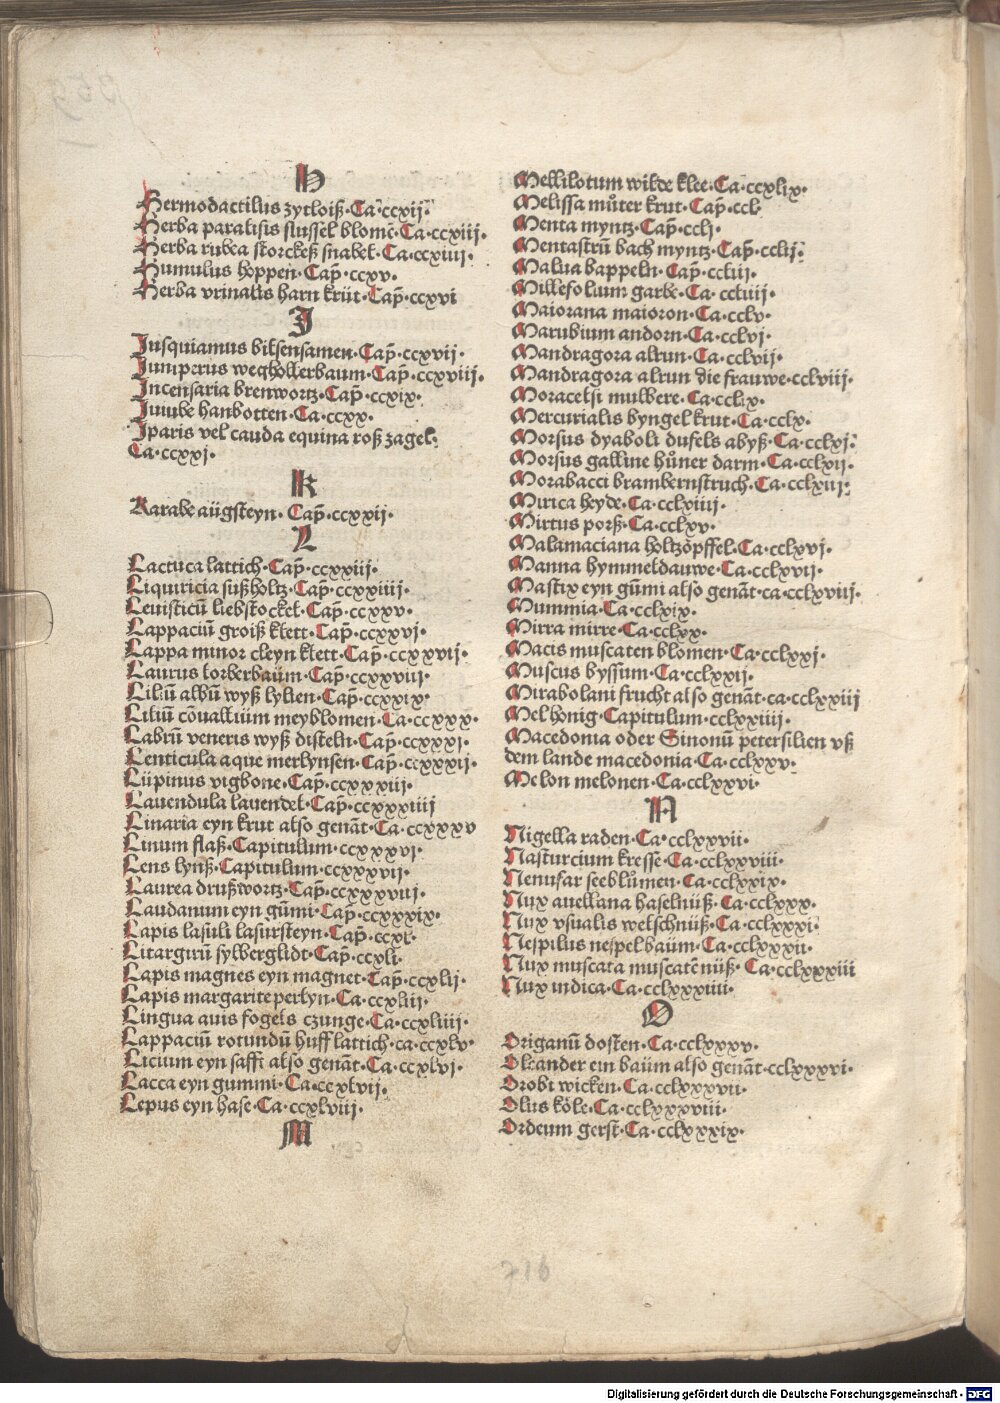 H
Hermodactilus zytloiß·Ca·ccxij·
Herba paralisis slussel blomē·Ca·ccxiij·
Herba rubea storckeß snabel·Ca·ccxiiij·
Humulus hoppen·Cap̄·ccxv·
Herba vrinalis harn krüt·Cap̄·ccxvi
I
Jusquiamus bilsensamen·Cap̄·ccxvij·
Juniperus weghollerbaum·Cap̄·ccxviij·
Incensaria brenwortz·Cap̄·ccxix·
Juiube hanbotten·Ca·ccxx·
Iparis vel cauda equina roß zagel·
Ca·ccxxj·
K
Karabe aügsteyn·Cap̄·ccxxij·
L
Lactuca lattich·Cap̄·ccxxiij·
Liquiricia sußholtz·Cap̄·ccxxiiij·
Leuisticū liebstockel·Cap̄·ccxxv·
Lappaciū groiß klett·Cap̄·ccxxvj·
Lappa minor cleyn klett·Cap̄·ccxxvij·
Laurus lorberbaüm·Cap̄·ccxxviij·
Liliū albū wyß lylien·Cap̄·ccxxix·
Liliū cōuallium meyblomen·Ca·ccxxx·
Labrū veneris wyß disteln·Cap̄·ccxxxj·
Lenticula aque merlynsen·Cap̄·ccxxxij·
Lüpinus vigbone·Cap̄·ccxxxiij·
Lauendula lauendel·Cap̄·ccxxxiiij
Linaria eyn krut also genāt·Ca·ccxxxv
Linum flaß·Capitulum·ccxxxvj·
Lens lynß·Capitulum·ccxxxvij·
Laurea drußwortz·Cap̄·ccxxxviij·
Laudanum eyn gūmi·Cap̄·ccxxxix·
Lapis lasuli lasursteyn·Cap̄·ccxl·
Litargirū sylberglidt·Cap̄·ccxli·
Lapis magnes eyn magnet·Cap̄·ccxlij·
Lapis margarite perlyn·Ca·ccxliij·
Lingua auis fogels czunge·Ca·ccxliiij·
Lappaciū rotundū huff lattich·ca·ccxlv·
Licium eyn safft also genāt·Ca·ccxlvj·
Lacca eyn gummi·Ca·ccxlvij·
Lepus eyn hase·Ca·ccxlviij·
M
Mellilotum wilde klee·Ca·ccxlix·
Melissa můter krut·Cap̄·ccl·
Menta myntz·Cap̄·cclj·
Mentastrū bach myntz·Cap̄·cclij·
Malua bappeln·Cap̄·ccliij·
Millefolium garbe·Ca·ccliiij·
Maiorana maioron·Ca·cclv·
Marubium andorn·Ca·cclvj·
Mandragora alrun·Ca·cclvij·
Mandragora alrun die frauwe·cclviij·
Moracelsi mulbere·Ca·cclix·
Mercurialis byngel krut·Ca·cclx·
Morsus dyaboli dufels abyß·Ca·cclxj·
Morsus galline hůner darm·Ca·cclxij·
Morabacci brambernstruch·Ca·cclxiij·
Mirica heyde·Ca·cclxiiij·
Mirtus porß·Ca·cclxv·
Malamaciana holtzöpffel·Ca·cclxvj·
Manna hymmeldauwe·Ca·cclxvij·
Mastix eyn gūmi also genāt·ca·cclxviij·
Mummia·Ca·cclxix·
Mirra mirre·Ca·cclxx·
Macis muscaten blomen·Ca·cclxxj·
Muscus byssum·Ca·cclxxij·
Mirabolani frucht also genāt·ca·cclxxiij
Mel honig·Capitulum·cclxxiiij·
Macedonia oder Sinonū petersilien vß
dem lande macedonia·Ca·cclxxv·
Melon melonen·Ca·cclxxvi·
N
Nigella raden·Ca·cclxxvii·
Nasturcium kresse·Ca·cclxxviii·
Nenufar seeblůmen·Ca·cclxxix·
Nux auellana haselnüß·Ca·cclxxx·
Nux vsualis welschnüß·Ca·cclxxxi·
Nespilus nespelbaüm·Ca·cclxxxii·
Nux muscata muscatēnüß·Ca·cclxxxiii
Nux indica·Ca·cclxxxiiii·
O
Origanū dosten·Ca·cclxxxv·
Oleander ein baüm also genāt·cclxxxvi·
Orobi wicken·Ca·cclxxxvii·
Olusköle·Ca·cclxxxviii·
Ordeum gerst·Ca·cclxxxix·
716
Digitalisierung gefördert durch die Deutsche Forschungsgemeinschaft - DFG